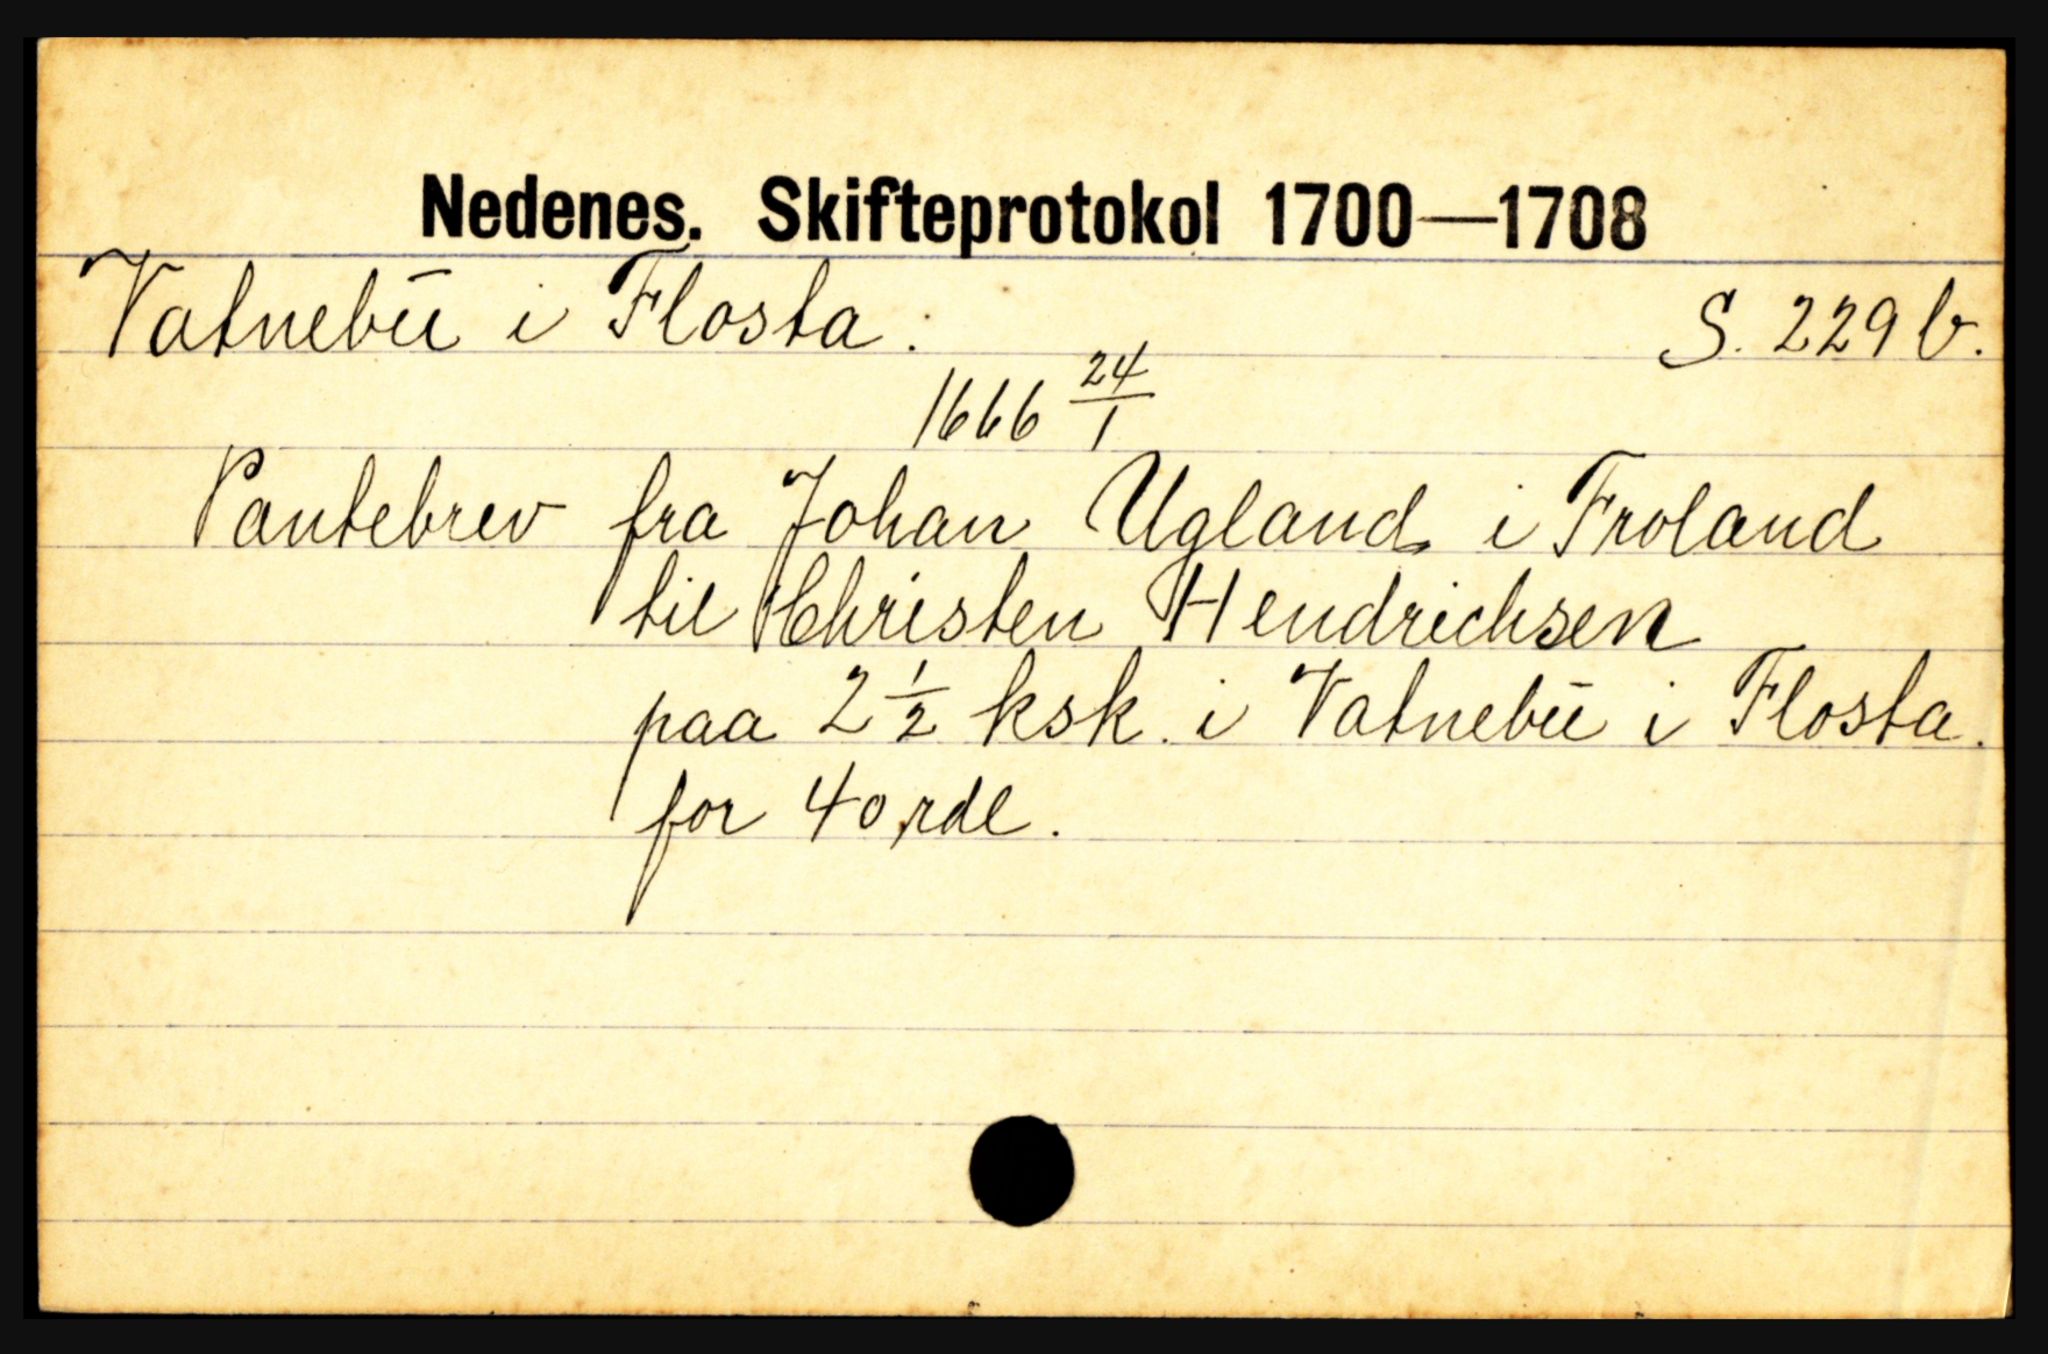 Nedenes. Skifteprotokol 1700—1708
Vatnebū i Flosta. S. 229 b.
1666 24/1
Pantebrev fra Johan Ugland i Froland
til Christen Hendrichsen
paa 2 1/2 ksk. i Vatnebū i Flosta.
for 40 rdl.